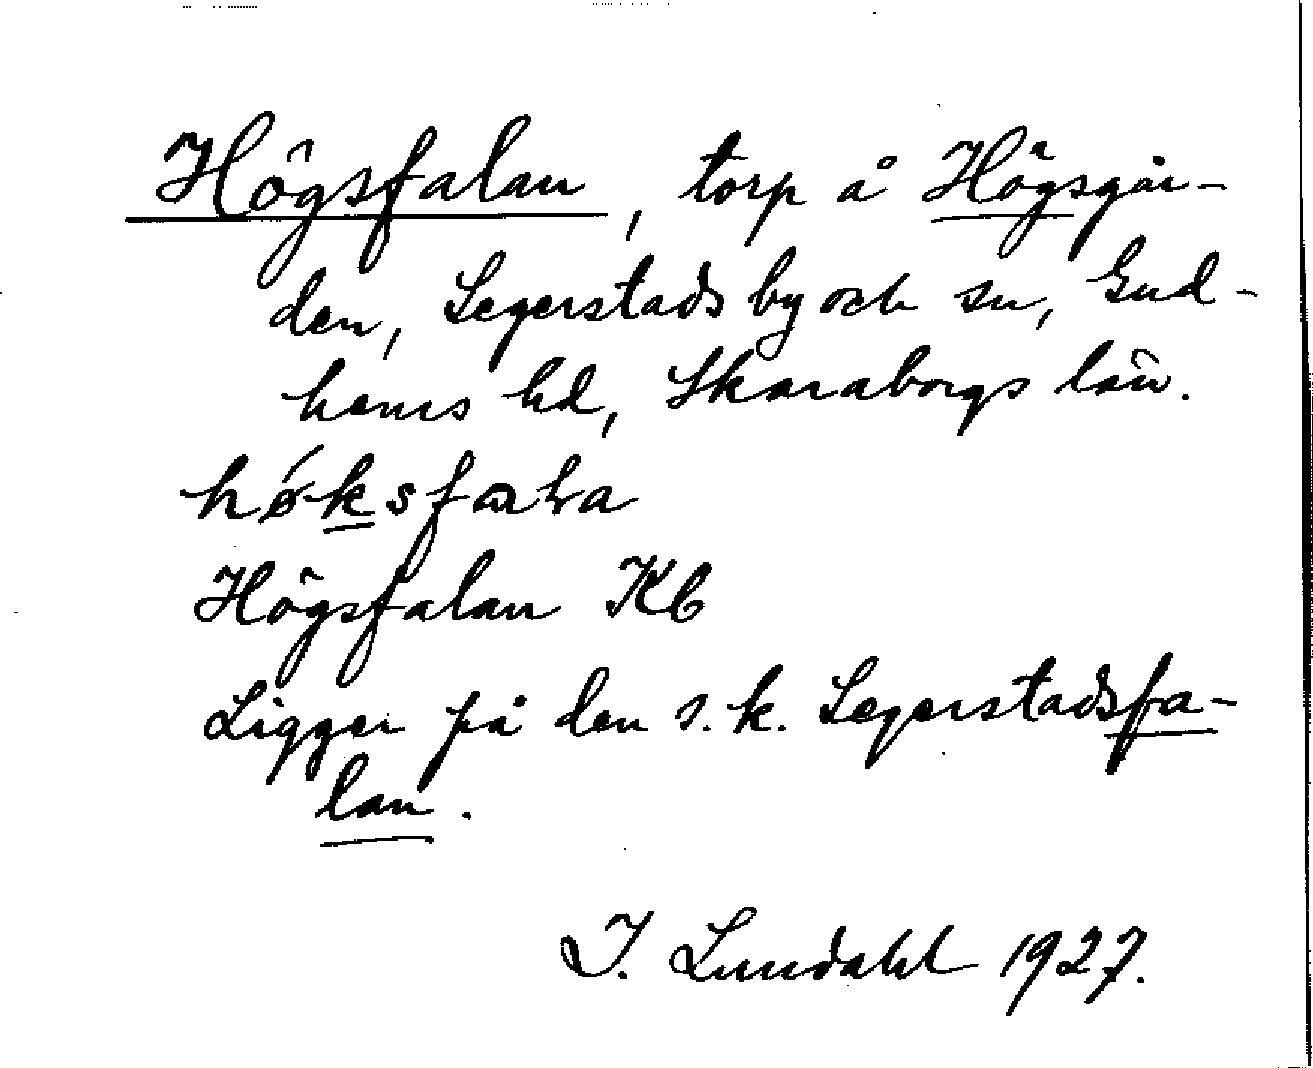 Högsfalan, torp å Högsgår-
den, Segerstads by och sn, Gud-
hems hd, Skaraborgs län.
Högsfalan Kb
Ligger på den s.k. Segerstadsfa-
lan.
I. Lundahl 1927.